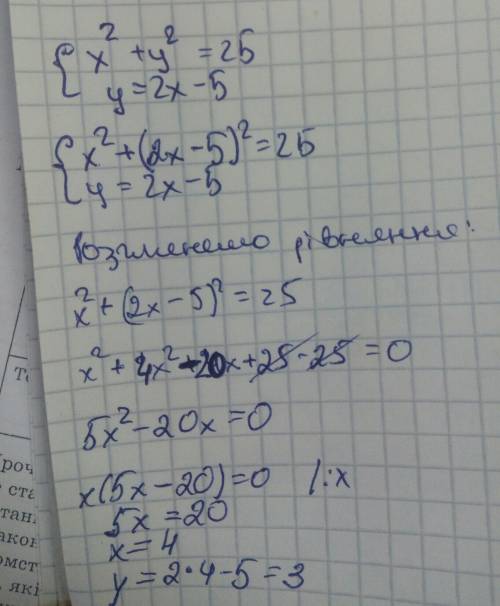 { x² + y² = 25
y = 2x - 5
{ x² + (2x - 5)² = 25
y = 2x - 5
рівняння:
x² + (2x - 5)² = 25
x² + 4x² - 20x + 25 - 25 = 0
5x² - 20x = 0
x(5x - 20) = 0 /:x
5x = 20
x = 4
y = 2·4 - 5 = 3
То
роч
ста
тан
акон
омст
, які